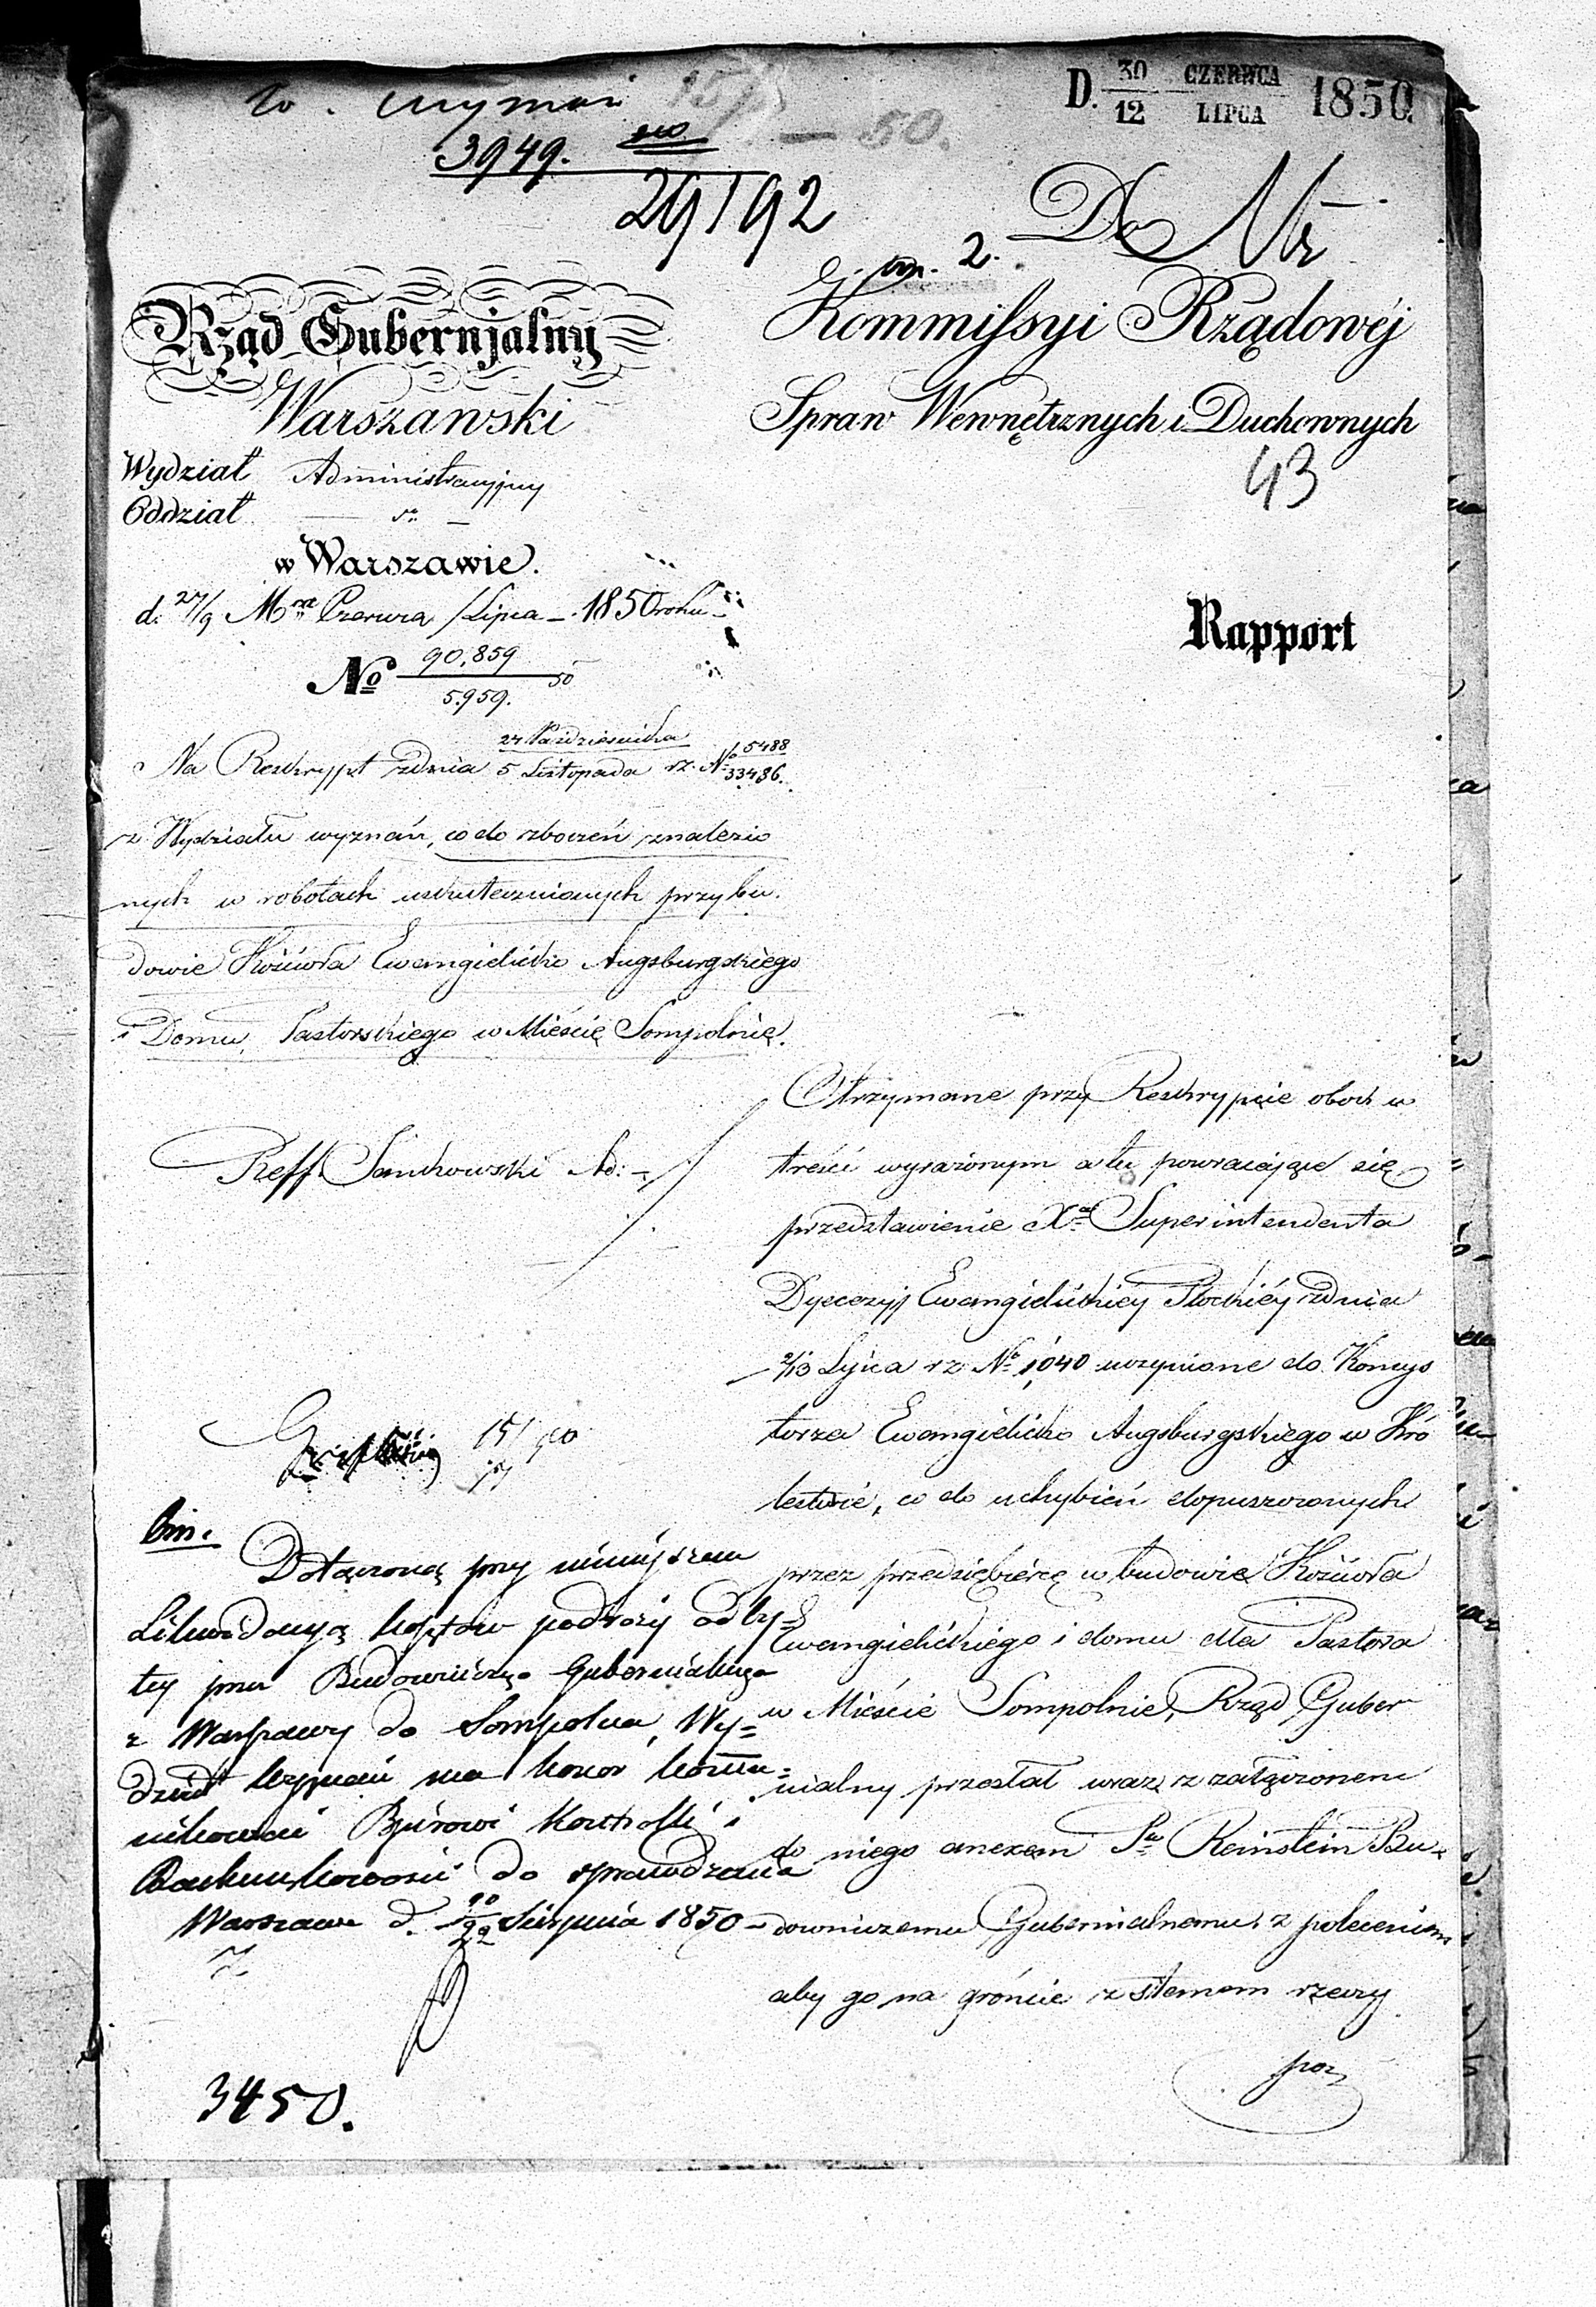 D. 30/12 CZERWCA/LIPCA 1850.
— 50.
3949.
29192
Do
2.
Kommissyi Rządowéj
Spraw Wewnętrznych i Duchownych
43
Rząd Gubernjalny
Warszawski
Wydział Administracyjny
Oddział
w Warszawie.
d. 27/9 Mca Czerwca / Lipca – 1850 roku
No 90,859/5.959. 50
Rapport
Na Reskrypt z dnia 24 Października/5 Listopada r.z. No 5488/33486.
z Wydziału wyznań, co do zboczeń znalezio
nych w robotach uskutecznionych przy bu.
dowie Kościoła Ewangielicko Augsburgskiego
i Domu Pastorskiego w Mieście Sompolnie.
Reff.
Otrzymane przy Reskrypcie obok w
treści wyrażonym a tu powracające się
przedstawienie Xa Superintendenta
Dyecezyj Ewangielickiéy Płockiéy z dnia
2/13 Lipca r.z. No 1040 uczynione do Konsys
torza Ewangielicko Augsburgskiego w Kró
lestwie, co do uchybień dopuszczonych
przez przedsiębiercę w budowie Kościoła
Ewangielickiego i domu dla Pastora
w Mieście Sompolnie, Rząd Guber
nialny przesłał wraz z załączonem
do niego anexem Pu Reinstein Bu
downiczemu Gubernialnemu, z poleceniem
aby go na gróncie z stemem rzeczy
poz
bm.
Dołączoną przy niniejszem
Likwidacyą kosztów podróży odby=
tey przez Budowniczego Gubernialnego
z Warszawy do Sompolna, Wy=
dział Wyznań ma honor kommu=
nikować Biórowi Kontrolli i
Rachunkowości do sprawdzenia
Warszawa d. 10/22 Sierpnia 1850
3450.